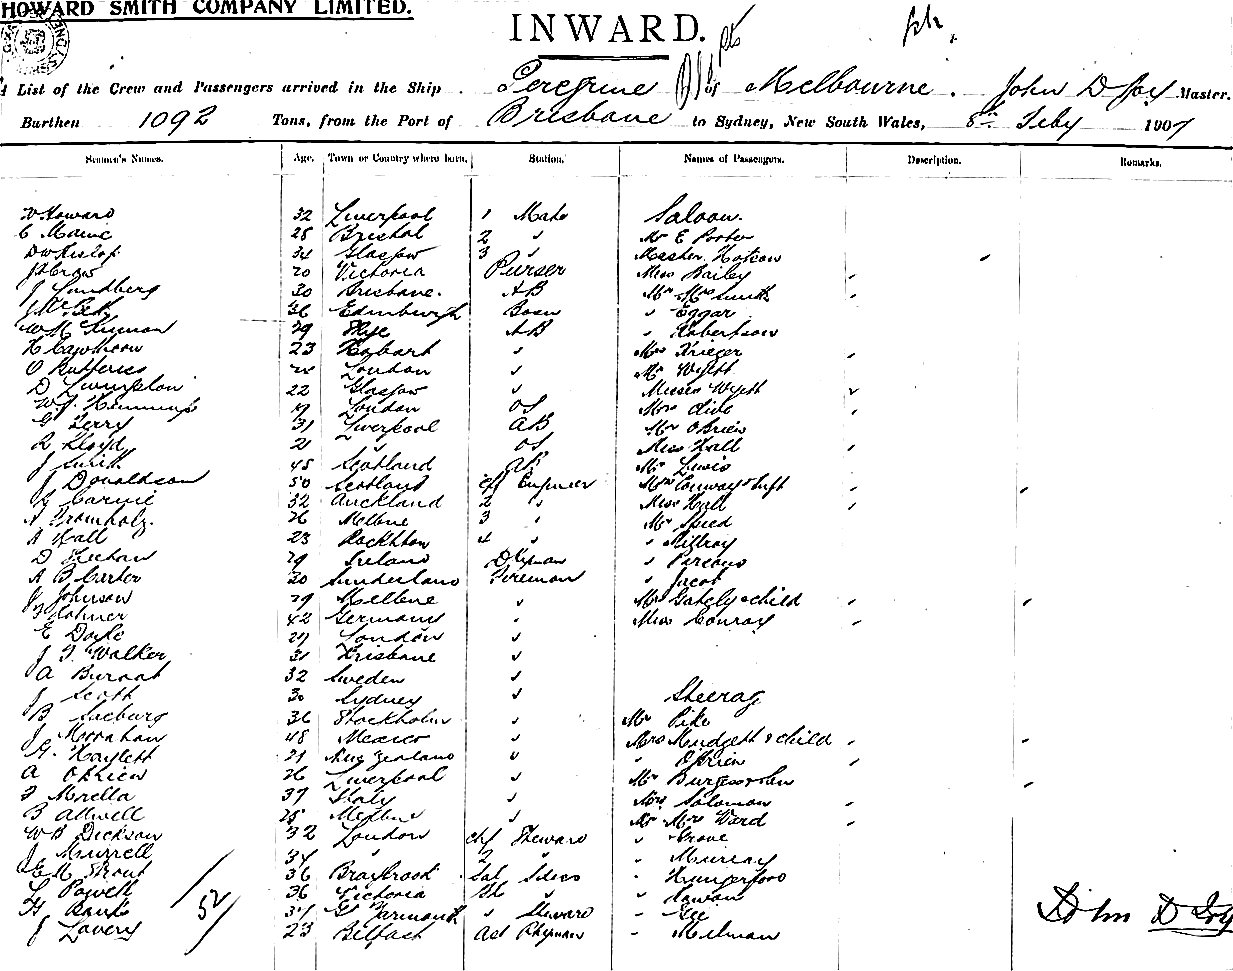 HOWARD SMITH COMPANY LIMITED.
INWARD.
List of the Crew and Passengers arrived in the Ship Peregrine of Melbourne. John D Joy Master.
Burthen 1092 Tons, from the Port of Brisbane to Sydney, New South Wales, 8th Feby 1907
Seamen's Names. Age. Town or Country where born. Station. Names of Passengers. Description. Remarks.
Howard 32 Liverpool 1 Mate Saloon.
28 Bristol 2 " Mr E Porter
34 Glasgow 3 " Master
20 Victoria Purser Miss Bailey
J Sundberg 30 Brisbane. AB Mr Mrs Smith
36 Edinburgh Bosn " Eggar
29 Skye AB " Robertson
23 Hobart " Mrs Krieger
London " Mr
D Livingston 22 Glasgow " Misses
London OS Mrs Clive
G Terry 31 Liverpool AB Mr OBrien
R Lloyd 21 " OS Miss Hall
J Smith 45 Scotland AB Mr Lewis
J Donaldson 50 Scotland Chf Engineer Mrs Conway &
32 Auckland 2 " Miss Hall
A 26 Melbne 3 " Mr Speed
A Hall 23 Rockhton 4 " " Millroy
D 29 Ireland Dkyman " Parsons
A B Carter 30 Sunderland Fireman " Jacob
J Johnson 29 Melbne " Mrs Gately & child
42 Germany " Miss Conroy
E Doyle 27 London "
J F Walker 31 Brisbane "
A 32 Sweden "
J Scott 30 Sydney " Steerag
B Seeburg 36 Stockholm " Mr Pike
J Monahan 48 Mexico " Mrs Mudgett & child
Haylett 21 New Zealand " " OBrien
A OBrien 26 Liverpool " Mr Burgess & son
F Morella 37 Italy " Mrs Salomon
B Attwell 25 Melbne " Mr Mrs Ward
W B Dickson 32 London Chf Steward " Grove
J Murrell 34 " 2 " " Murray
E M Strout 36 Braybrook Sal " Hungerford
Powell 36 Victoria " "
H Banks 34 Gt Yarmouth " Steward " Gee
J Lavery 23 Belfast Ast " Melman
52
John D Joy